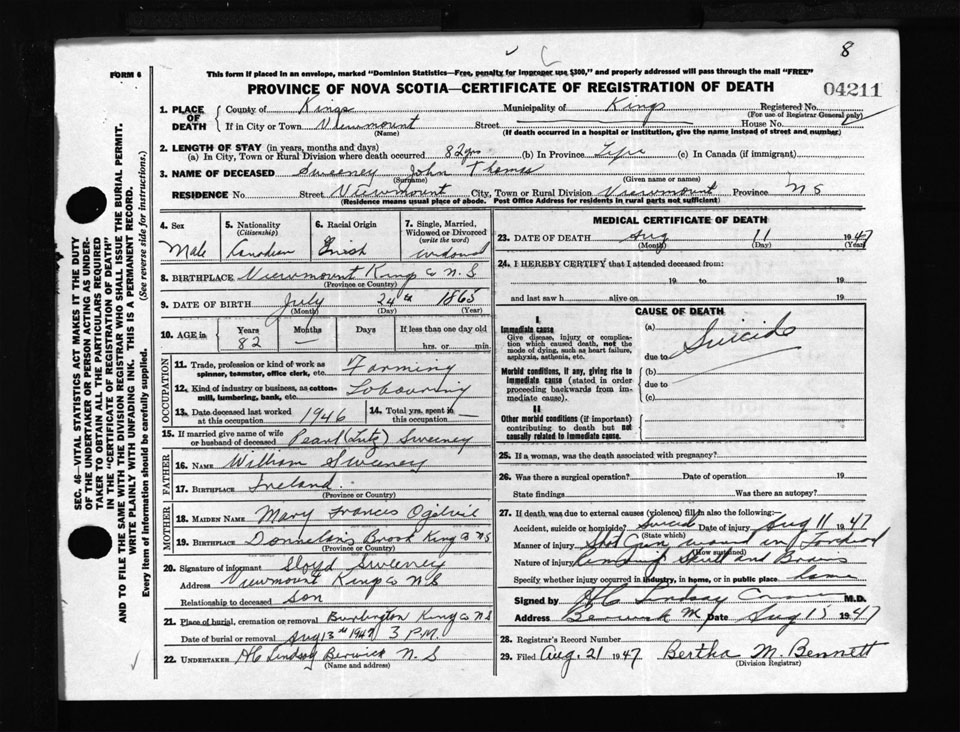 8
FORM 6
This form if placed in an envelope, marked "Dominion Statistics—Free, penalty for improper use $300," and properly addressed will pass through the mail "FREE"
PROVINCE OF NOVA SCOTIA—CERTIFICATE OF REGISTRATION OF DEATH
04211
SEC. 46—VITAL STATISTICS ACT MAKES IT THE DUTY
OF THE UNDERTAKER OR PERSON ACTING AS UNDER-
TAKER TO OBTAIN ALL THE PARTICULARS REQUIRED
IN THE "CERTIFICATE OF REGISTRATION OF DEATH"
AND TO FILE THE SAME WITH THE DIVISION REGISTRAR WHO SHALL ISSUE THE BURIAL PERMIT.
WRITE PLAINLY WITH UNFADING INK. THIS IS A PERMANENT RECORD.
Every item of Information should be carefully supplied. (See reverse side for instructions.)
1. PLACE OF DEATH County of Kings Municipality of Kings Registered No.
(For use of Registrar General only)
If in City or Town Viewmount Street House No.
(Name) (If death occurred in a hospital or institution, give the name instead of street and number)
2. LENGTH OF STAY (in years, months and days)
(a) In City, Town or Rural Division where death occurred 82 yrs (b) In Province Life (c) In Canada (if immigrant)
3. NAME OF DECEASED Sweeney John Thomas
(Surname) (Given name or names)
RESIDENCE No. Street Viewmount City, Town or Rural Division Viewmount Province N S
(Residence means usual place of abode. Post Office Address for residents in rural parts not sufficient)
4. Sex 5. Nationality 6. Racial Origin 7. Single, Married,
(Citizenship) Widowed or Divorced
(write the word)
Male Canadian Irish widowed
8. BIRTHPLACE Viewmount King Co N.S
(Province or Country)
9. DATE OF BIRTH July 24th 1865
(Month) (Day) (Year)
10. AGE in Years Months Days If less than one day old
82 — hrs. or min.
OCCUPATION
11. Trade, profession or kind of work as Farming
spinner, teamster, office clerk, etc.
12. Kind of industry or business, as cotton- Labouring
mill, lumbering, bank, etc.
13. Date deceased last worked 1946 14. Total yrs. spent in —
at this occupation this occupation
15. If married give name of wife Pearl (Lutz) Sweeney
or husband of deceased
FATHER
16. NAME William Sweeney
17. BIRTHPLACE Ireland.
(Province or Country)
MOTHER
18. MAIDEN NAME Mary Frances Ogilvie
19. BIRTHPLACE Donnelans Brook King Co NS
(Province or Country)
20. Signature of informant Lloyd Sweeney
Address Viewmount King Co N S
Relationship to deceased son
21. Place of burial, cremation or removal Burlington King Co N S
Date of burial or removal Aug 13th 1947 3 P.M.
22. UNDERTAKER H C Lindsay Berwick N. S
(Name and address)
MEDICAL CERTIFICATE OF DEATH
23. DATE OF DEATH Aug 11 1947
(Month) (Day) (Year)
24. I HEREBY CERTIFY that I attended deceased from:
19 to 19
and last saw h alive on 19
CAUSE OF DEATH
I
Immediate cause (a) Suicide
Give disease, injury or complica-
tion which caused death, not the
mode of dying, such as heart failure, due to
asphyxia, asthenia, etc.
Morbid conditions, if any, giving rise to (b)
immediate cause (stated in order due to
proceeding backwards from im-
mediate cause). (c)
II
Other morbid conditions (if important)
contributing to death but not
causally related to immediate cause.
25. If a woman, was the death associated with pregnancy?
26. Was there a surgical operation? Date of operation 19
State findings Was there an autopsy?
27. If death was due to external causes (violence) fill in also the following:—
Accident, suicide or homicide? Suicide Date of injury Aug 11 1947
(State which)
Manner of injury Shot Gun wound in Forehead
(How sustained)
Nature of injury Skull and Brain
Specify whether injury occurred in industry, in home, or in public place home
Signed by H C Lindsay M.D.
Address Berwick Date Aug 15 1947
28. Registrar's Record Number
29. Filed Aug. 21 1947 Bertha M. Bennett
(Division Registrar)